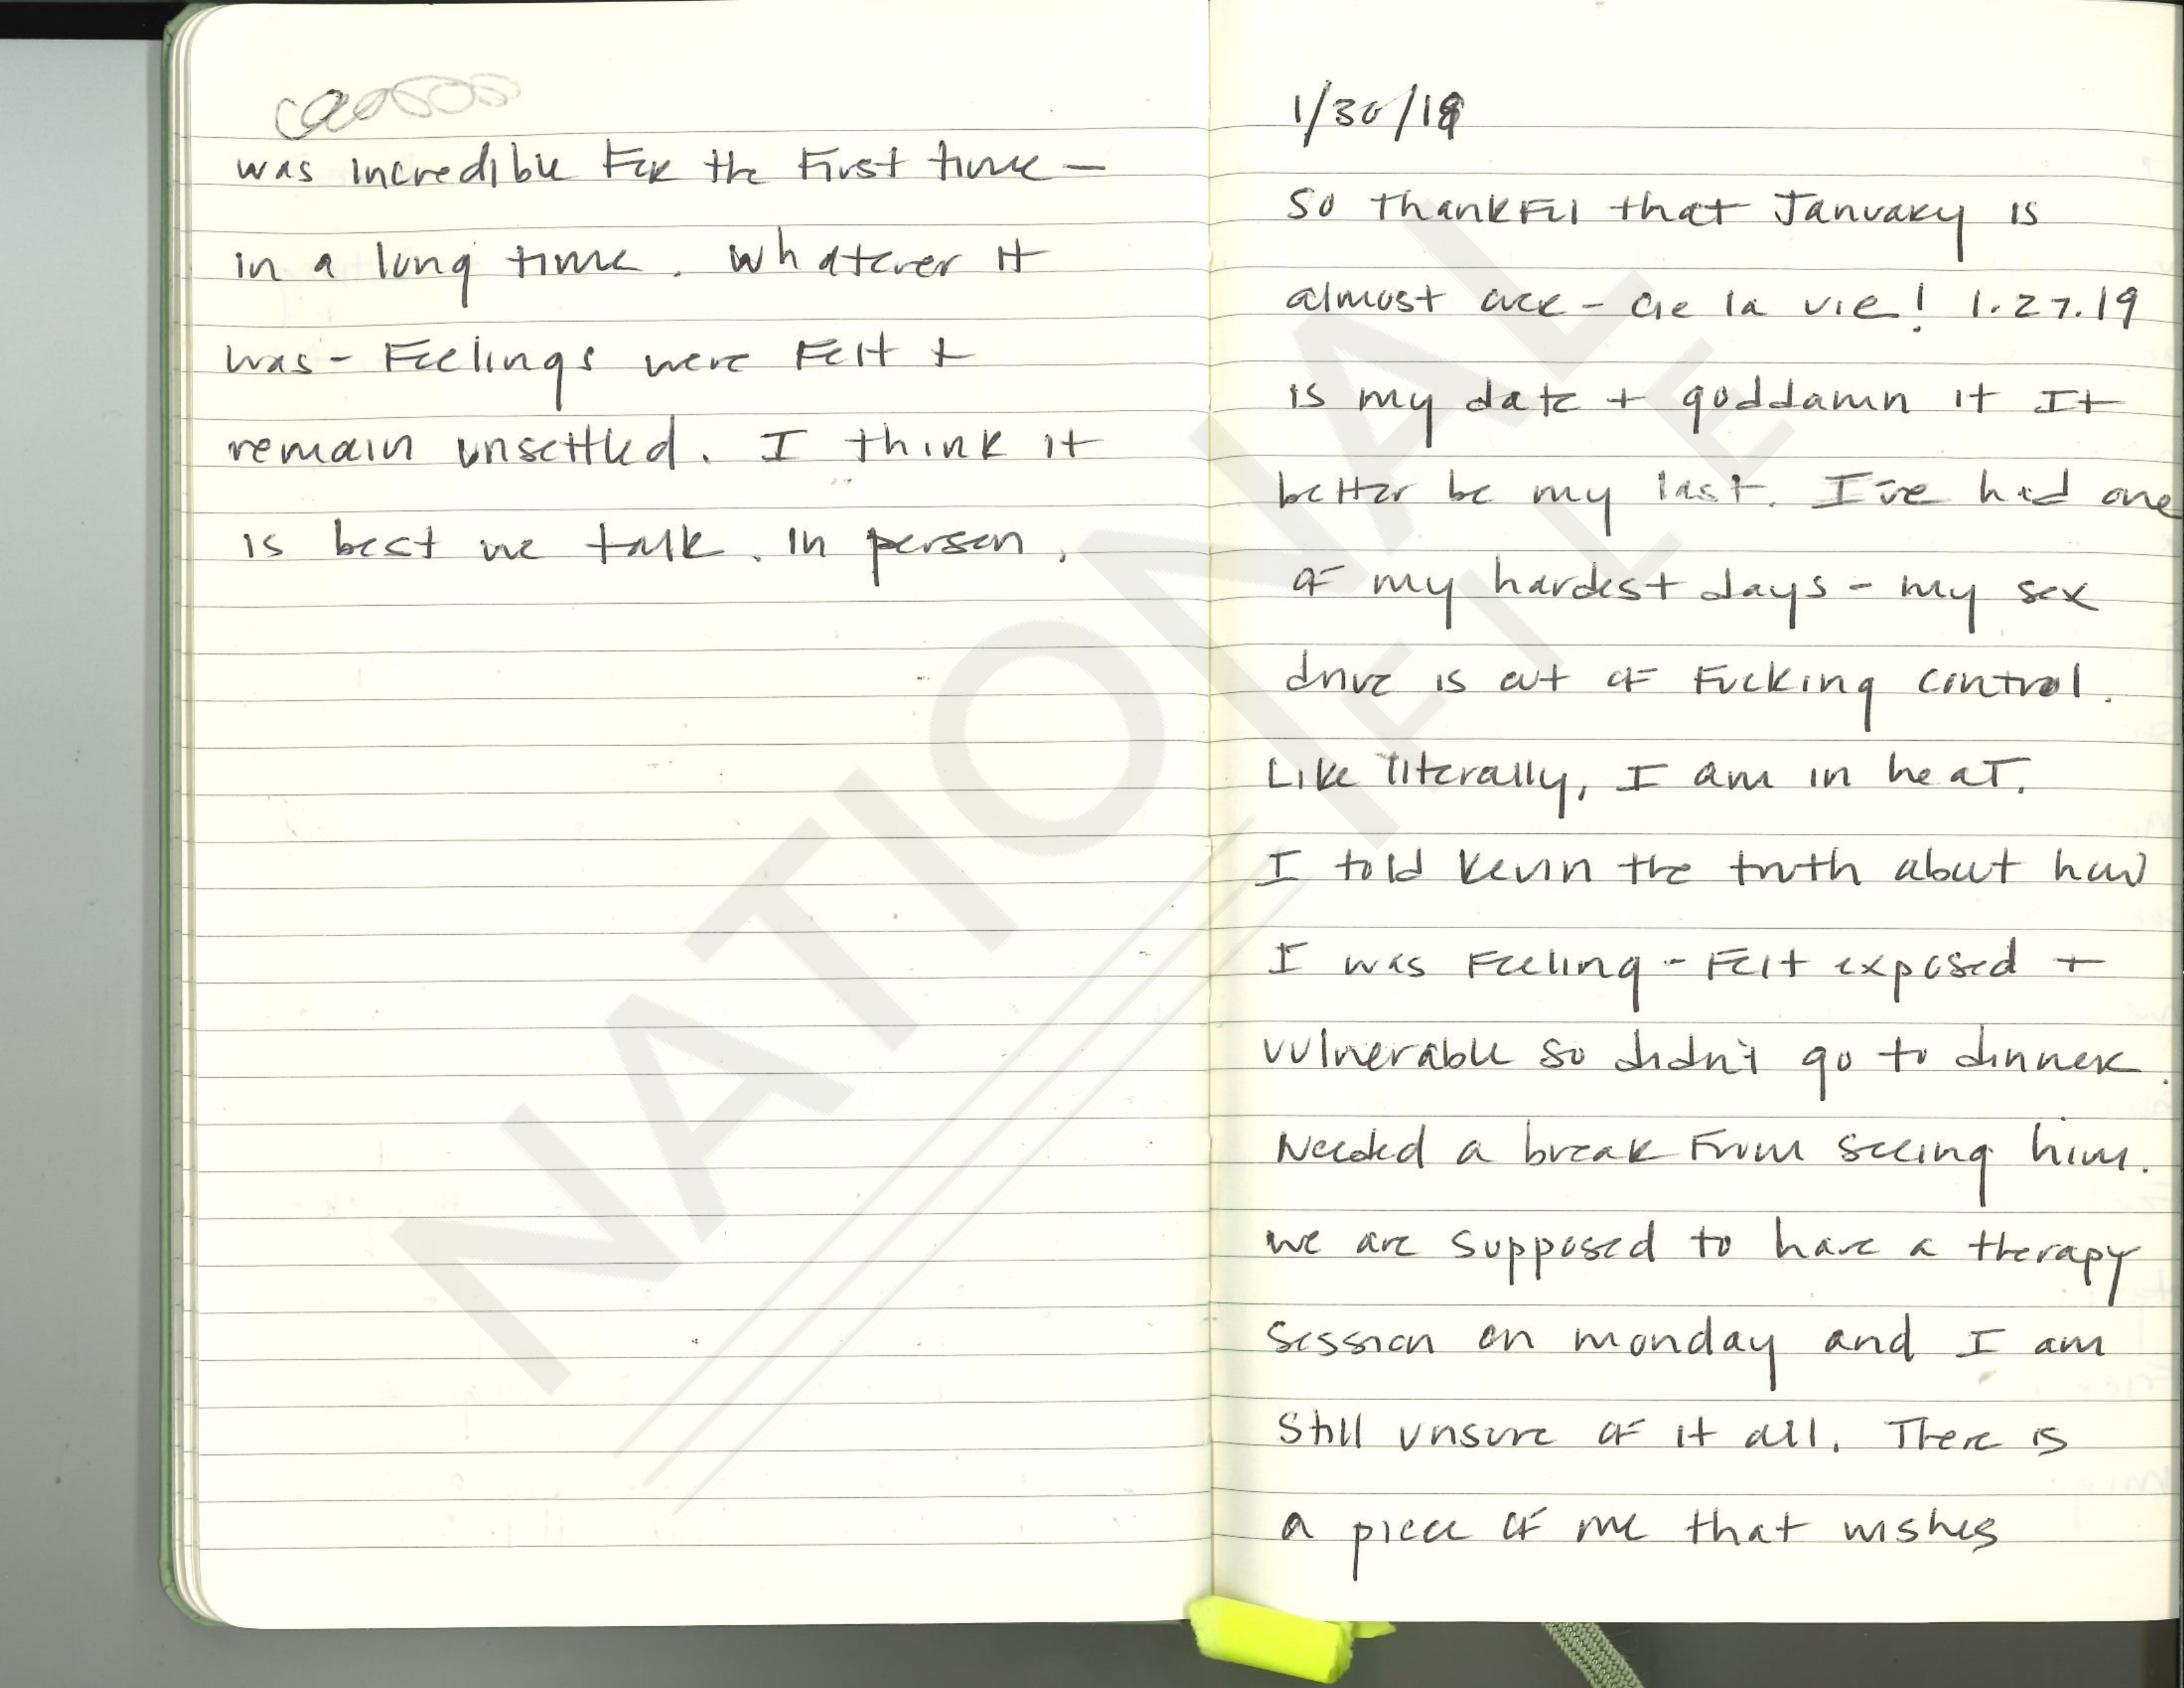 was incredible for the first time –
in a long time. Whatever it
was - Feelings were felt +
remain unsettled. I think it
is best we talk. In person.
1/30/19
So thankful that January is
almost over - Cie la vie! 1.27.19
is my date + goddamn it It
better be my last. I've had one
of my hardest days - my sex
drive is out of fucking control.
Like literally, I am in heat.
I told Kevin the truth about how
I was feeling - felt exposed +
vulnerable so didn't go to dinner.
Needed a break from seeing him.
we are supposed to have a therapy
session on monday and I am
still unsure of it all. There is
a piece of me that wishes
NATIONAL
FILE